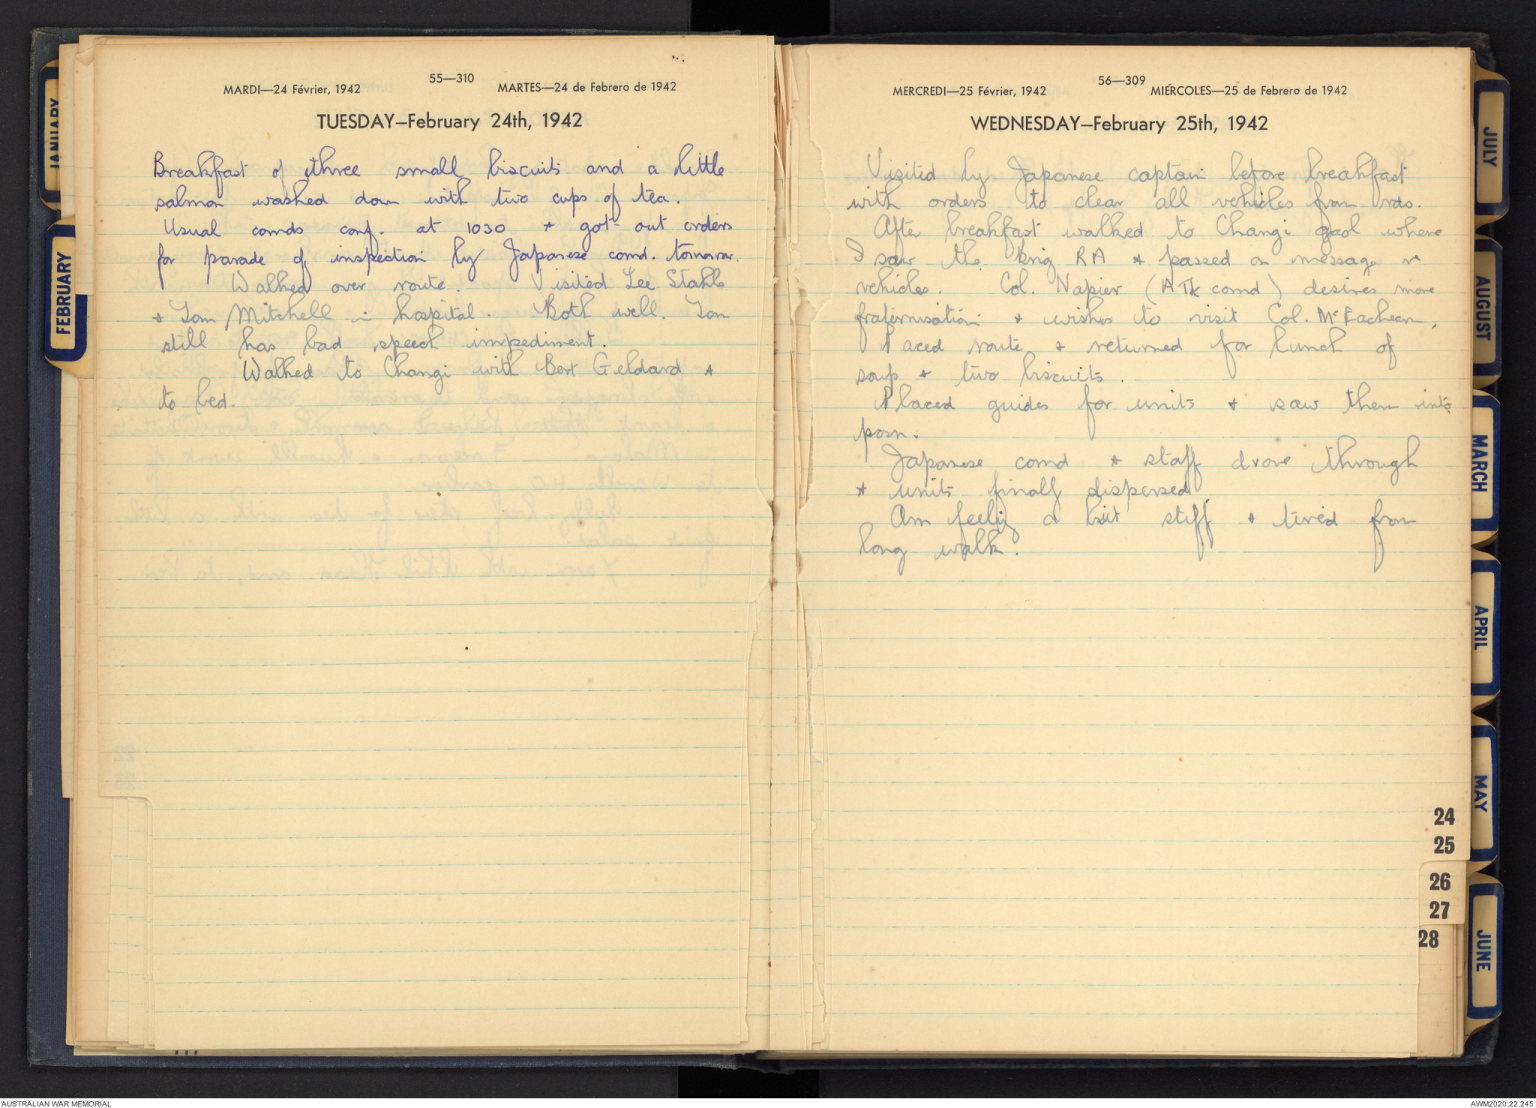 55—310
MARDI—24 Février, 1942 MARTES—24 de Febrero de 1942
TUESDAY—February 24th, 1942
Breakfast of three small biscuits and a little
salmon washed down with two cups of tea.
Usual comds conf. at 1030 + got out orders
for parade of inspection by Japanese comd. tomorrow.
Walked over route. Visited Lee Stahle
+ Tom Mitchell in hospital. Both well. Tom
still has bad speech impediment.
Walked to Changi with Bert Geldard +
to bed.
56—309
MERCREDI—25 Février, 1942 MIÉRCOLES—25 de Febrero de 1942
WEDNESDAY—February 25th, 1942
Visited by Japanese captain before breakfast
with orders to clear all vehicles from rds.
After breakfast walked to Changi gaol where
I saw the brig RA + passed on message re
vehicles. Col. Napier (A Tk comd) desires more
fraternisation + wishes to visit Col. McEachern.
Paced route + returned for lunch of
soup + two biscuits.
Placed guides for units + saw them into
posn.
Japanese comd + staff drove through
+ units finally dispersed.
Am feeling a bit stiff + tired from
long walk.
JANUARY
FEBRUARY
JULY
AUGUST
MARCH
APRIL
MAY
JUNE
24
25
26
27
28
AUSTRALIAN WAR MEMORIAL AWM2020.22.245